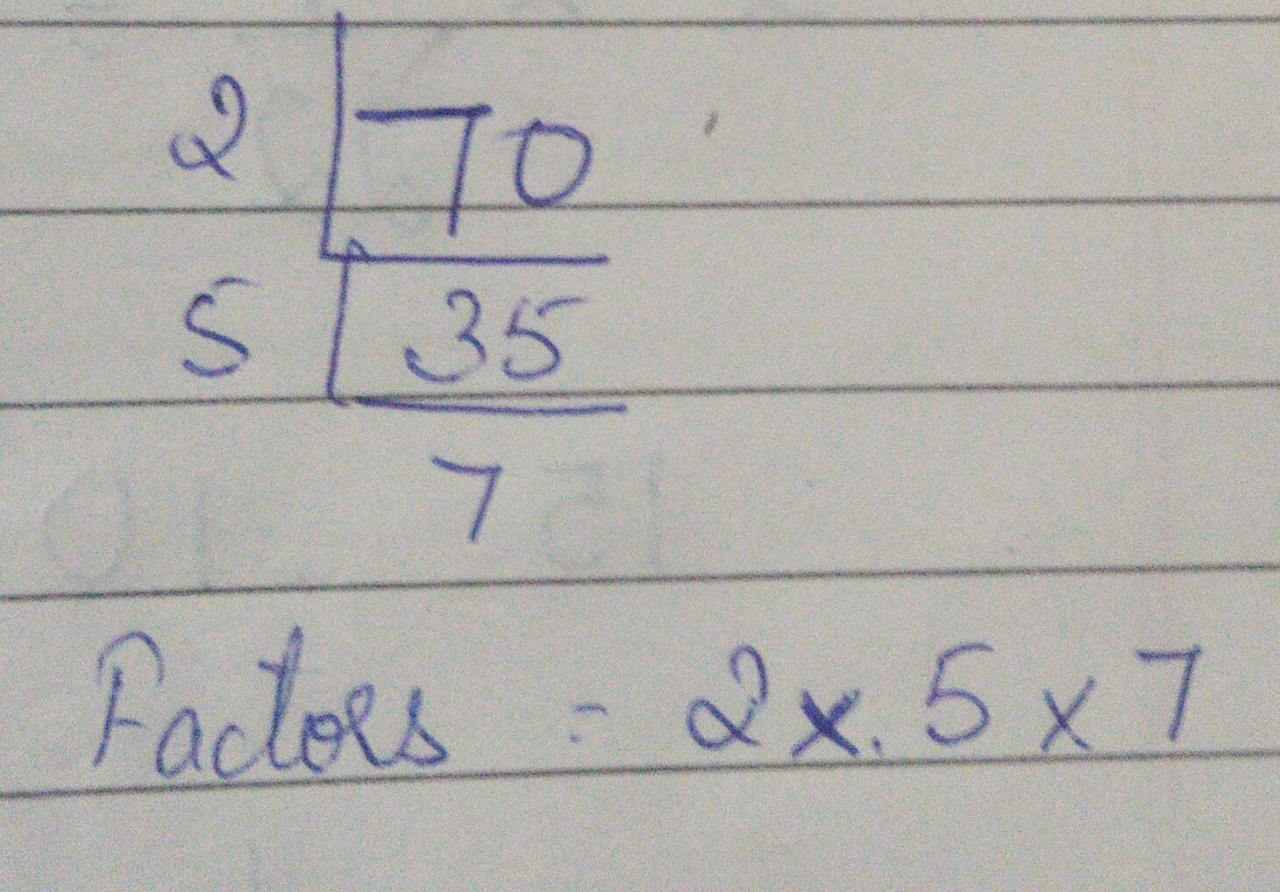 2 70
5 35
7
Factors = 2 x. 5 x 7